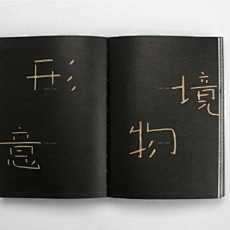 形
境
意
物